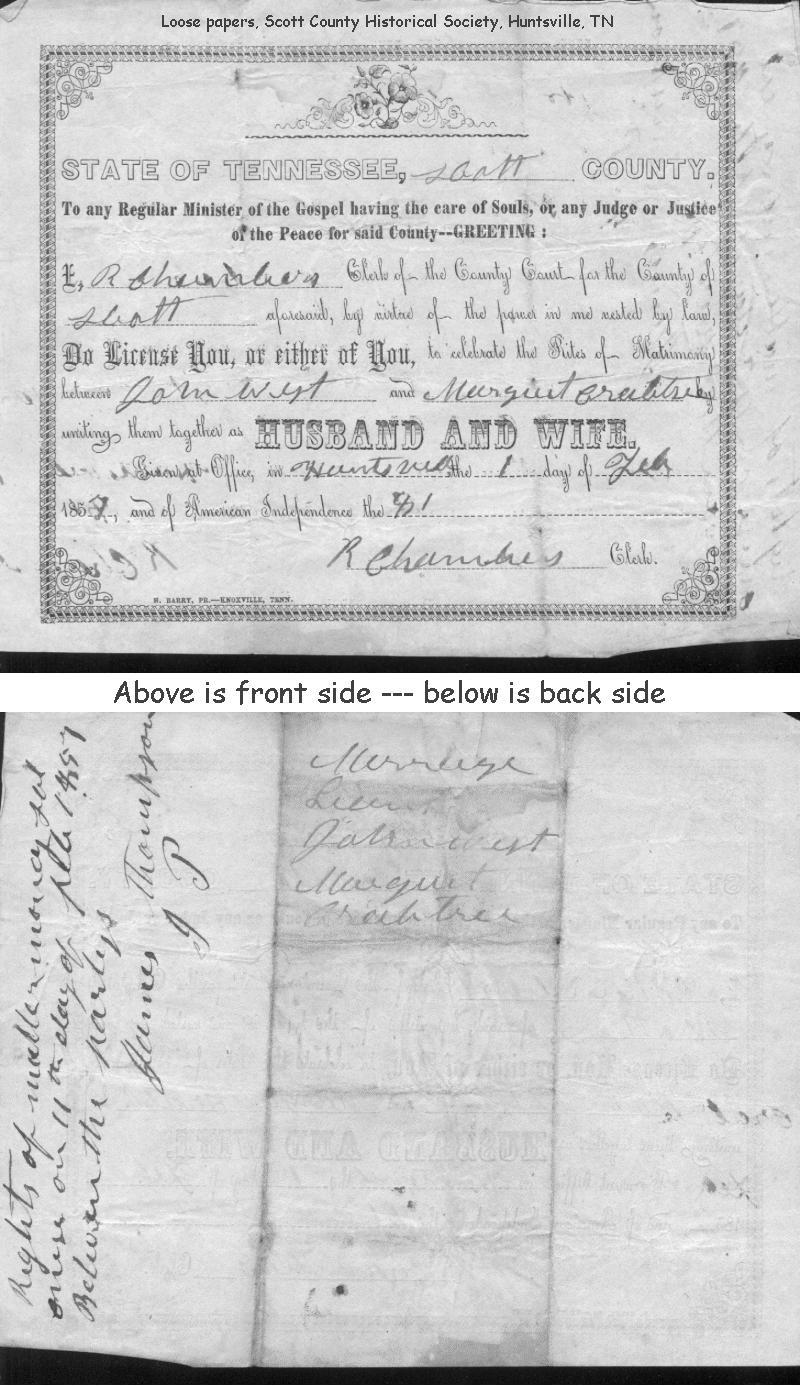 Loose papers, Scott County Historical Society, Huntsville, TN
STATE OF TENNESSEE, Scott COUNTY.
To any Regular Minister of the Gospel having the care of Souls, or any Judge or Justice
of the Peace for said County--GREETING:
I, R Chambers Clerk of the County Court for the County of
Scott aforesaid, by virtue of the power in me vested by law,
Do License You, or either of You, to celebrate the Rites of Matrimony
between John West and Marguit Crabtree by
uniting them together as HUSBAND AND WIFE.
Given at Office, in Huntsville the 1 day of Feb
1857, and of American Independence the 81
R Chambers Clerk.
H. BARRY, PR.—KNOXVILLE, TENN.
Above is front side --- below is back side
Rights of mattermoney sol
on 11th day of 1857
Between the partys
James Thompson
J P
Marriage
John West
Marguit
Crabtree